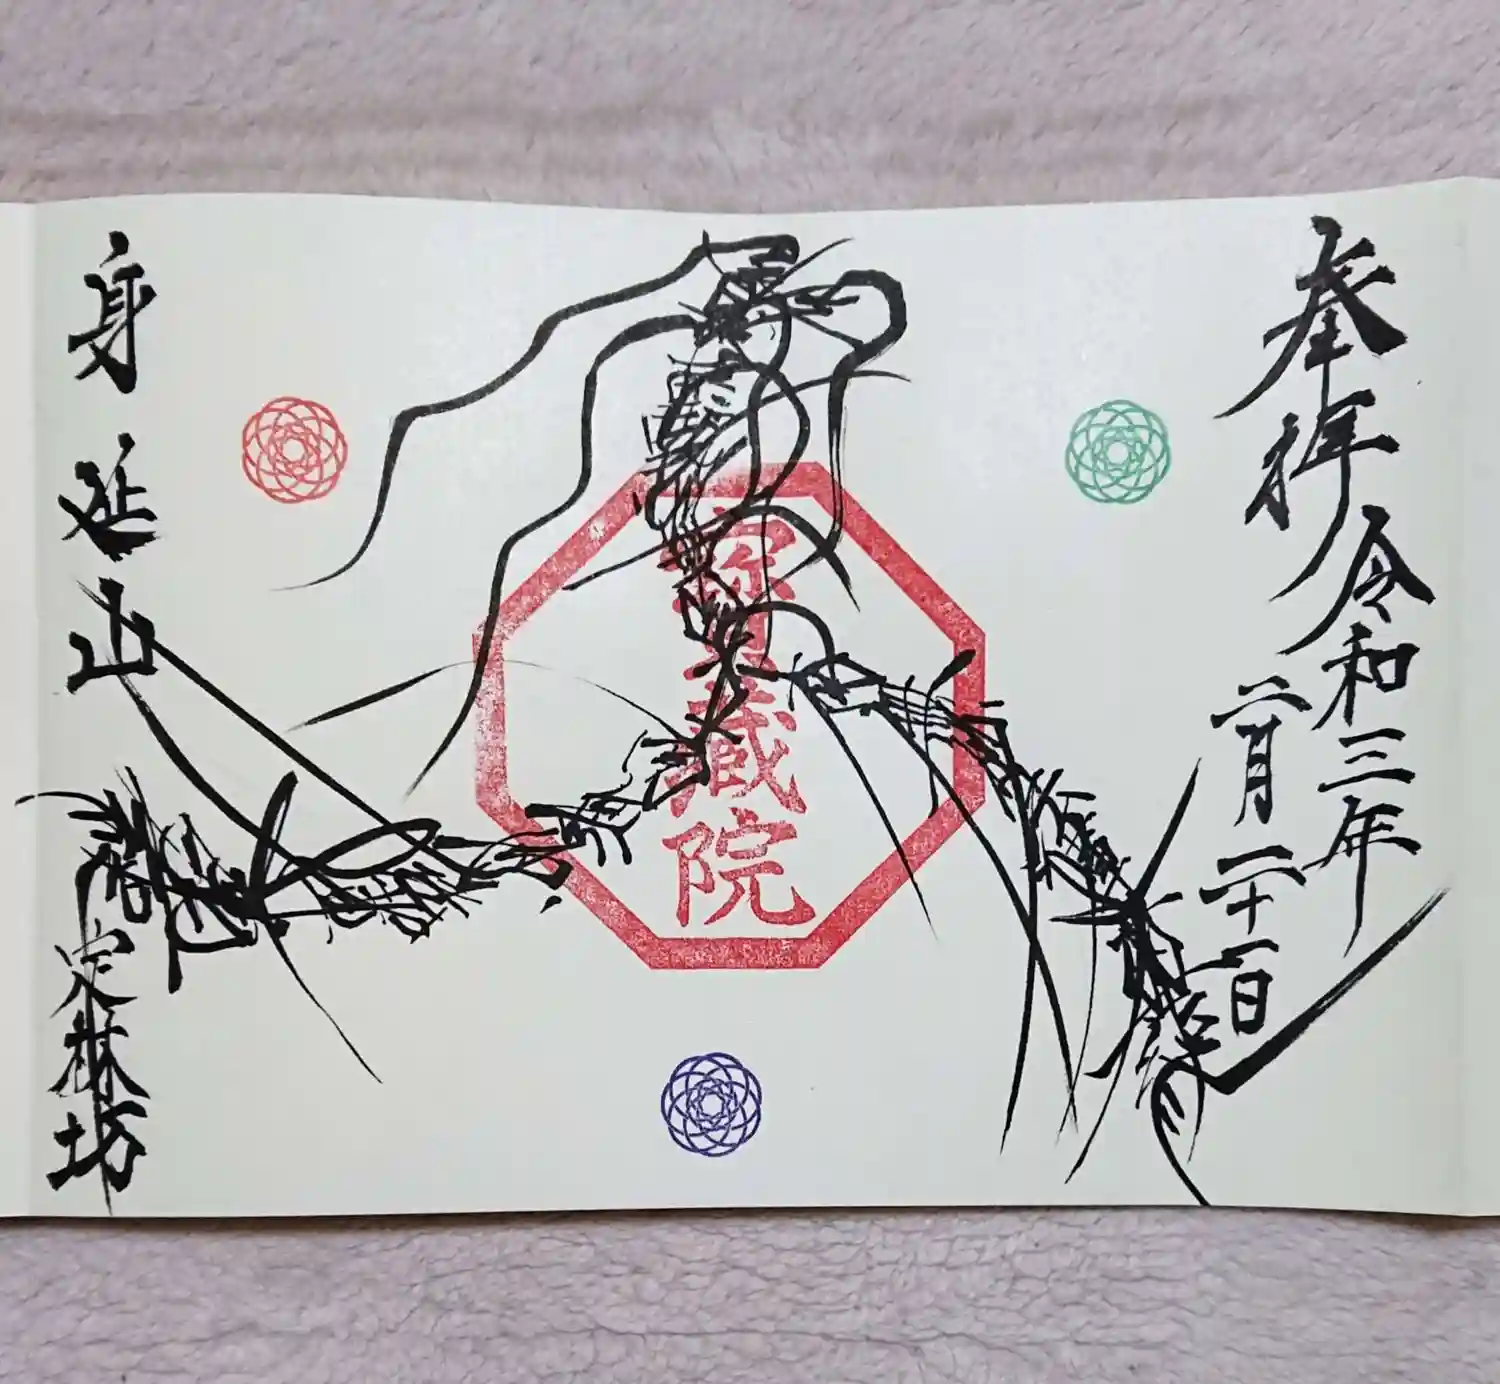 奉拝
令和三年
二月二十一日
宝蔵院
身延山
定林坊